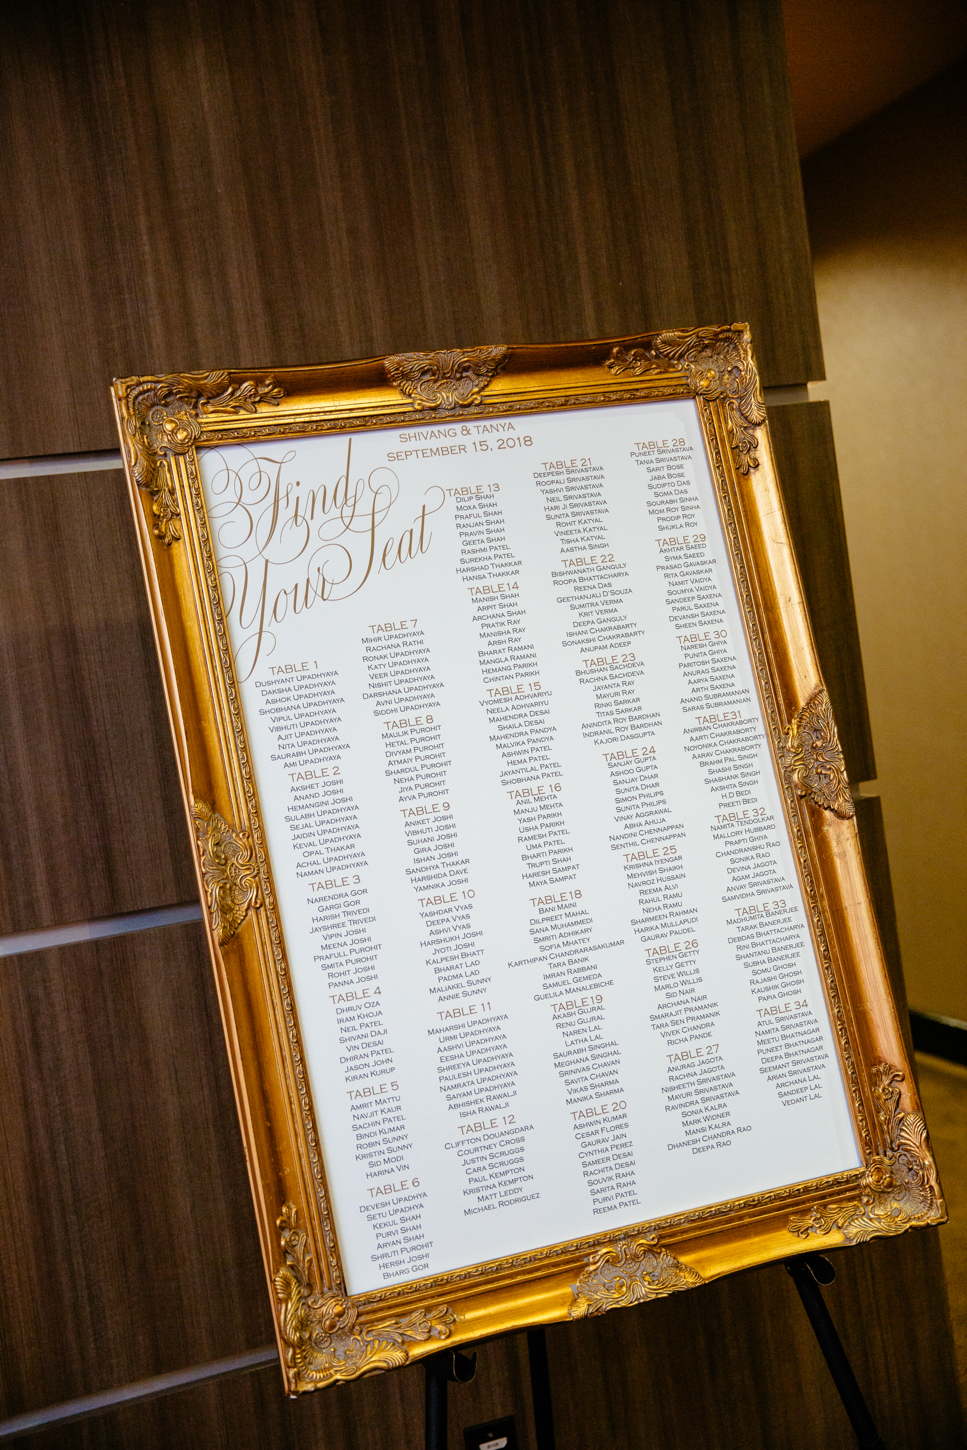 SHIVANG & TANYA
SEPTEMBER 15, 2018
Find
Your Seat
TABLE 1
DUSHYANT UPADHYAYA
DAKSHA UPADHYAYA
ASHOK UPADHYAYA
SHOBHANA UPADHYAYA
VIPUL UPADHYAYA
VIBHUTI UPADHYAYA
AJIT UPADHYAYA
NITA UPADHYAYA
SAURABH UPADHYAYA
AMI UPADHYAYA
TABLE 2
AKSHET JOSHI
ANAND JOSHI
HEMANGINI JOSHI
SULABH UPADHYAYA
SEJAL UPADHYAYA
JAIDIN UPADHYAYA
KEVAL UPADHYAYA
OPAL THAKAR
ACHAL UPADHYAYA
NAMAN UPADHYAYA
TABLE 3
NARENDRA GOR
GARGI GOR
HARISH TRIVEDI
JAYSHREE TRIVEDI
VIPIN JOSHI
MEENA JOSHI
PRAFULL PUROHIT
SMITA PUROHIT
ROHIT JOSHI
PANNA JOSHI
TABLE 4
DHRUV OZA
IRAM KHOJA
NEIL PATEL
SHIVANI DAJI
VIN DESAI
DHIRAN PATEL
JASON JOHN
KIRAN KURUP
TABLE 5
AMRIT MATTU
NAVJIT KAUR
SACHIN PATEL
BINDI KUMAR
ROBIN SUNNY
KRISTIN SUNNY
SID MODI
HARINA VIN
TABLE 6
DEVESH UPADHYA
SETU UPADHYA
KEKUL SHAH
PURVI SHAH
ARYAN SHAH
SHRUTI PUROHIT
HERSH JOSHI
BHARG GOR
TABLE 7
MIHIR UPADHYAYA
RACHANA RATHI
RONAK UPADHYAYA
KATY UPADHYAYA
VEER UPADHYAYA
NISHIT UPADHYAYA
DARSHANA UPADHYAYA
AVNI UPADHYAYA
SIDDHI UPADHYAYA
TABLE 8
MAULIK PUROHIT
HETAL PUROHIT
DIVYAM PUROHIT
ATMAIY PUROHIT
SHARDUL PUROHIT
NEHA PUROHIT
JIYA PUROHIT
AVYA PUROHIT
TABLE 9
ANIKET JOSHI
VIBHUTI JOSHI
SUHANI JOSHI
GIRA JOSHI
ISHAN JOSHI
SANDHYA THAKAR
HARSHIDA DAVE
YAMNIKA JOSHI
TABLE 10
YASHDAR VYAS
DEEPA VYAS
ASHVI VYAS
HARSHUKH JOSHI
JYOTI JOSHI
KALPESH BHATT
BHARAT LAD
PADMA LAD
MALIAKEL SUNNY
ANNIE SUNNY
TABLE 11
MAHARSHI UPADHYAYA
URMI UPADHYAYA
AASHVI UPADHYAYA
EESHA UPADHYAYA
SHREEYA UPADHYAYA
PAULESH UPADHYAYA
NAMRATA UPADHYAYA
SAIYAM UPADHYAYA
ABHISHEK RAWALJI
ISHA RAWALJI
TABLE 12
CLIFFTON DOUANGDARA
COURTNEY CROSS
JUSTIN SCRUGGS
CARA SCRUGGS
PAUL KEMPTON
KRISTINA KEMPTON
MATT LEDDY
MICHAEL RODRIGUEZ
TABLE 13
DILIP SHAH
MOXA SHAH
PRAFUL SHAH
RANJAN SHAH
PRAVIN SHAH
GEETA SHAH
RASHMI PATEL
SUREKHA PATEL
HARSHAD THAKKAR
HANSA THAKKAR
TABLE 14
MANISH SHAH
ARPIT SHAH
ARCHANA SHAH
PRATIK RAY
MANISHA RAY
ARSH RAY
BHARAT RAMANI
MANGLA RAMANI
HEMANG PARIKH
CHINTAN PARIKH
TABLE 15
VYOMESH ADHVARIYU
NEELA ADHVARIYU
MAHENDRA DESAI
SHAILA DESAI
MAHENDRA PANDYA
MALVIKA PANDYA
ASHWIN PATEL
HEMA PATEL
JAYANTILAL PATEL
SHOBHANA PATEL
TABLE 16
ANIL MEHTA
MANJU MEHTA
YASH PARIKH
USHA PARIKH
RAMESH PATEL
UMA PATEL
BHARTI PARIKH
TRUPTI SHAH
HARESH SAMPAT
MAYA SAMPAT
TABLE 18
BANI MAINI
DILPREET MAHAL
SANA MUHAMMEDI
SMRITI ADHIKARY
SOFIA MHATEY
KARTHIPAN CHANDRARASAKUMAR
TARA BANIK
IMRAN RABBANI
SAMUEL GEMEDA
GUELILA MANALEBICHE
TABLE 19
AKASH GUJRAL
RENU GUJRAL
NAREN LAL
LATHA LAL
SAURABH SINGHAL
MEGHANA SINGHAL
SRINIVAS CHAVAN
SAVITA CHAVAN
VIKAS SHARMA
MANIKA SHARMA
TABLE 20
ASHWIN KUMAR
CESAR FLORES
GAURAV JAIN
CYNTHIA PEREZ
SAMEER DESAI
RACHITA DESAI
SOUVIK RAHA
SARITA RAHA
PURVI PATEL
REEMA PATEL
TABLE 21
DEEPESH SRIVASTAVA
ROOPALI SRIVASTAVA
YASHVI SRIVASTAVA
NEIL SRIVASTAVA
HARI JI SRIVASTAVA
SUNITA SRIVASTAVA
ROHIT KATYAL
VINEETA KATYAL
TISHA KATYAL
AASTHA SINGH
TABLE 22
BISHWANATH GANGULY
ROOPA BHATTACHARYA
REENA DAS
GEETHANJALI D'SOUZA
SUMITRA VERMA
KRIT VERMA
DEEPA GANGULY
ISHANI CHAKRABARTY
SONAKSHI CHAKRABARTY
ANUPAM ADEEP
TABLE 23
BHUSHAN SACHDEVA
RACHNA SACHDEVA
JAYANTA RAY
MAYURI RAY
RINKI SARKAR
TITAS SARKAR
ANINDITA ROY BARDHAN
INDRANIL ROY BARDHAN
KAJORI DASGUPTA
TABLE 24
SANJAY GUPTA
ASHOO GUPTA
SANJAY DHAR
SUNITA DHAR
SIMON PHILIPS
SUNITA PHILIPS
VINAY AGGRAWAL
ABHA AHUJA
NANDINI CHENNAPPAN
SENTHIL CHENNAPPAN
TABLE 25
KRISHNA IYENGAR
MEHVISH SHAIKH
NAVROZ HUSSAIN
REEMA ALVI
RAHUL RAMU
NEHA RAMU
SHARMEEN RAHMAN
HARIKA MULLAPUDI
GAURAV PAUDEL
TABLE 26
STEPHEN GETTY
KELLY GETTY
STEVE WILLIS
MARLO WILLIS
SID NAIR
ARCHANA NAIR
SMARAJIT PRAMANIK
TARA SEN PRAMANIK
VIVEK CHANDRA
RICHA PANDE
TABLE 27
ANURAG JAGOTA
RACHNA JAGOTA
NISHEETH SRIVASTAVA
MAYURI SRIVASTAVA
RAVINDRA SRIVASTAVA
SONIA KALRA
MARK WIDNER
MANSI KALRA
DHANESH CHANDRA RAO
DEEPA RAO
TABLE 28
PUNEET SRIVASTAVA
TANIA SRIVASTAVA
SARIT BOSE
JABA BOSE
SUDIPTO DAS
SOMA DAS
SOURABH SINHA
MOM ROY SINHA
PRODIP ROY
SHUKLA ROY
TABLE 29
AKHTAR SAEED
SYMA SAEED
PRASAD GAVASKAR
RITA GAVASKAR
NAMIT VAIDYA
SOUMYA VAIDYA
SANDEEP SAXENA
PARUL SAXENA
DEVANSH SAXENA
SHEEN SAXENA
TABLE 30
NARESH GHIYA
PUNITA GHIYA
PARITOSH SAXENA
ANURAG SAXENA
AARYA SAXENA
ARTH SAXENA
ANAND SUBRAMANIAN
SARAS SUBRAMANIAN
TABLE31
ANIRBAN CHAKRABORTY
AARTI CHAKRABORTY
NOYONIKA CHAKRABORTY
AARAV CHAKRABORTY
BRAHM PAL SINGH
SHASHI SINGH
SHASHANK SINGH
AKSHITA SINGH
H.D BEDI
PREETI BEDI
TABLE 32
NAMITA TENDOLKAR
MALLORY HUBBARD
PRAPTI GHIYA
CHANDRANSHU RAO
SONIKA RAO
DEVINA JAGOTA
AGAM JAGOTA
ANVAY SRIVASTAVA
SAMVIDHA SRIVASTAVA
TABLE 33
MADHUMITA BANERJEE
TARAK BANERJEE
DEBIDAS BHATTACHARYA
RINI BHATTACHARYA
SHANTANU BANERJEE
SUBHA BANERJEE
SOMU GHOSH
RAJASHI GHOSH
KAUSHIK GHOSH
PAPA GHOSH
TABLE 34
ATUL SRIVASTAVA
NAMITA SRIVASTAVA
MEETU BHATNAGAR
PUNEET BHATNAGAR
DEEPA BHATNAGAR
SEEMANT SRIVASTAVA
ARIAN SRIVASTAVA
ARCHANA LAL
SANDEEP LAL
VEDANT LAL